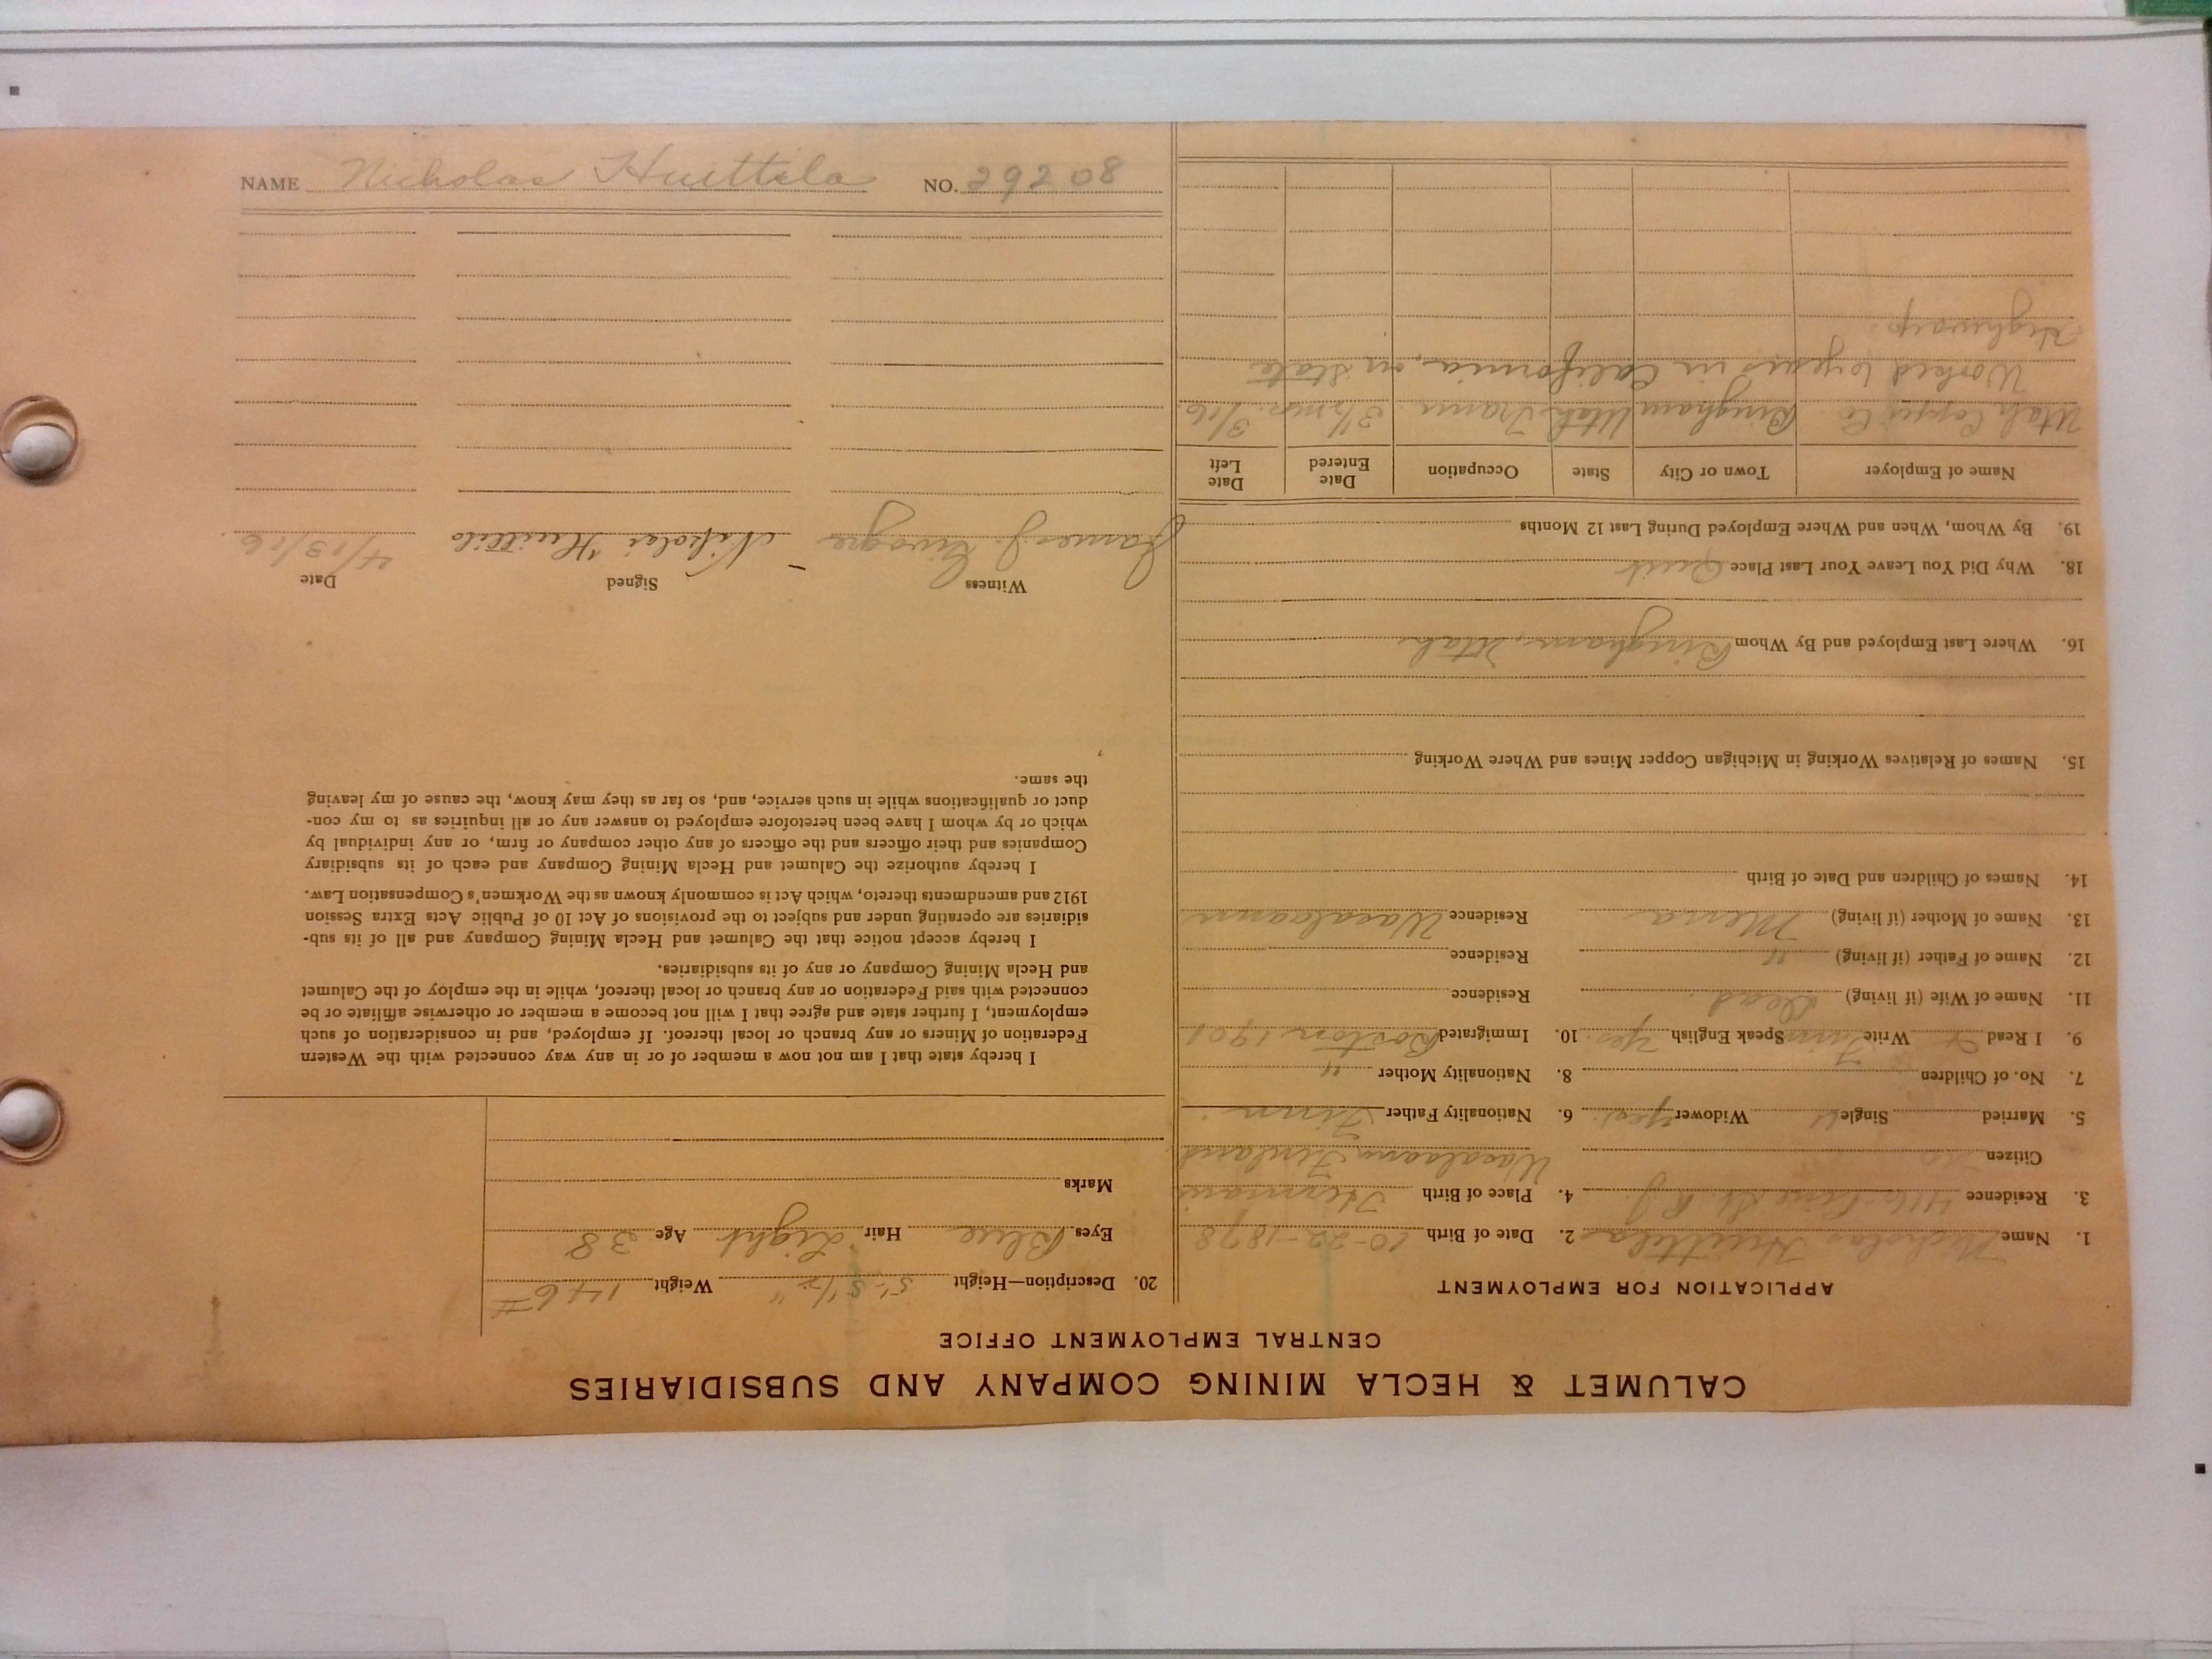 CALUMET & HECLA MINING COMPANY AND SUBSIDIARIES
CENTRAL EMPLOYMENT OFFICE
APPLICATION FOR EMPLOYMENT
1. Name Nicholas Huittila 2. Date of Birth 10-22-1878
3. Residence Pine St. R.J. 4. Place of Birth
Citizen Finland
5. Married Single Widower yes. 6. Nationality Father Finn
7. No. of Children 8. Nationality Mother "
9. I Read Write Finn Speak English Yes. 10. Immigrated Boston 1901
11. Name of Wife (if living) Dead. Residence
12. Name of Father (if living) " Residence
13. Name of Mother (if living) Residence
14. Names of Children and Date of Birth
15. Names of Relatives Working in Michigan Copper Mines and Where Working
16. Where Last Employed and By Whom Bingham, Utah
18. Why Did You Leave Your Last Place Quit
19. By Whom, When and Where Employed During Last 12 Months
Name of Employer Town or City State Occupation Date Entered Date Left
Utah Copper Co. Bingham Utah 3½ mos. 3/16.
Worked 6 years in California, on state
Highway.
20. Description—Height 5'-5½" Weight 146#
Eyes Blue Hair Light Age 38
Marks
I hereby state that I am not now a member of or in any way connected with the Western
Federation of Miners or any branch or local thereof. If employed, and in consideration of such
employment, I further state and agree that I will not become a member or otherwise affiliate or be
connected with said Federation or any branch or local thereof, while in the employ of the Calumet
and Hecla Mining Company or any of its subsidiaries.
I hereby accept notice that the Calumet and Hecla Mining Company and all of its sub-
sidiaries are operating under and subject to the provisions of Act 10 of Public Acts Extra Session
1912 and amendments thereto, which Act is commonly known as the Workmen's Compensation Law.
I hereby authorize the Calumet and Hecla Mining Company and each of its subsidiary
Companies and their officers and the officers of any other company or firm, or any individual by
which or by whom I have been heretofore employed to answer any or all inquiries as to my con-
duct or qualifications while in such service, and, so far as they may know, the cause of my leaving
the same.
Witness Signed Date
James J. Nikolai Huittila 4/13/16.
NAME Nicholas Huittila NO. 29208